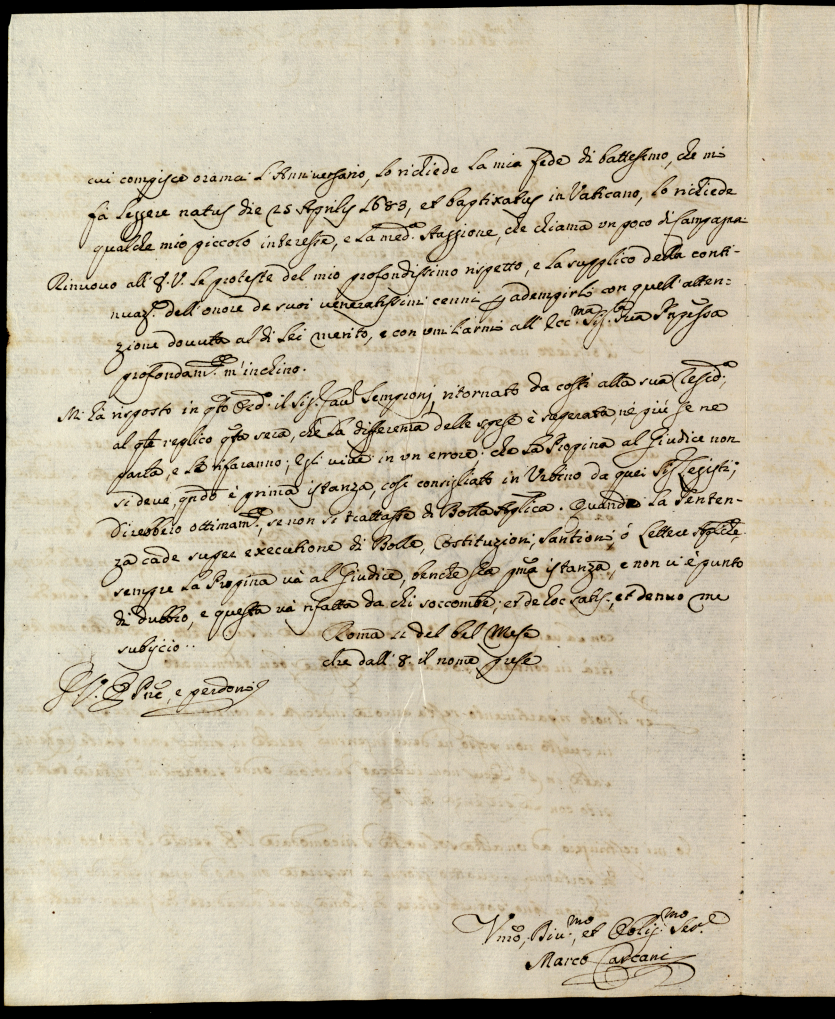 cui compisce oramai l'Anniversario, lo richiede la mia fede di battesimo, che mi
fà leggere natus die 25 Aprilis 1683, et baptizatus in Vaticano, lo richiede
qualche mio piccolo interesse, e la med.ª staggione, che chiama un poco di Campagna
Rinuovo all' S. V. le proteste del mio profondissimo rispetto, e la supplico della conti-
nuaz.e dell'onore de suoi veneratissimi cenni p adempirli con quell'atten-
zione dovuta al di Lei merito, e con umiliarmi all' Ecc.ma Sig.ra
profondam.te m'inchino.
Mi hà risposto in qto Ord.º il Sig. Sempronj, ritornato da costì alla sua Resid.ª;
al qle replico qta sera, che la differenza delle spese è superata, nè più se ne
parla, e si rifaranno; Egli vive in un errore: che la Propina al Giudice non
si deve, qndo è prima istanza, così consigliato in Urbino da quei Sig.ri Legisti;
Direbbero ottimam.te, se non si trattasse di Bolla Aplica. Quando la Senten-
za cade super executione di Bolle, Costituzioni, Santioni ò Lettere Apliche,
sempre la Propina và al Giudice, benche sia pma istanza, e non vi è punto
di dubbio, e questa và rifatta da chi soccombe; et de hoc satis, et denuo me
subijcio..
Roma 11 del bel Mese
che dall' 8. il nome prese
P. V. E Pre, e perdoni
Vmo, Div.mo, et Oblig.mo Ser.e
Marco Carcani